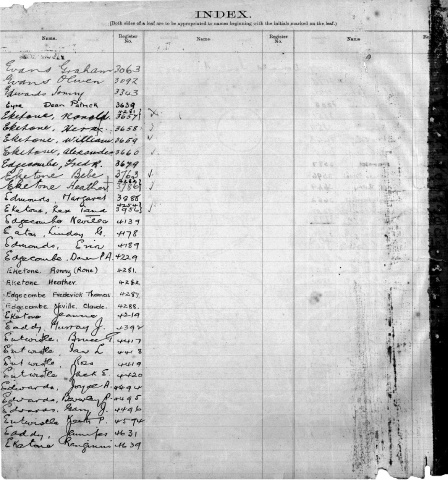 INDEX.
(Both sides of a leaf are to be appropriated to names beginning with the initials marked on the leaf.)
Name. Register No. Name Register No. Name
Evans Graham 3063
Evans Olwen 3092
Edwards Tommy 3343
Eyre Dean Patrick 3639
Eketone, Ronald 3657
Eketone, 3658
Eketone, William 3659
Eketone, Alexander 3660
Edgecombe, Fred R. 3679
Eketone Bebe 3763
Eketone Heather 3786
Edmonds, Margaret 3988
Eketone, Rex 3956
Edgecombe Neville 4139
Eaton, Lindsay G. 4178
Edmonds, Eric 4189
Edgecombe, P.A. 4229
Eketone, Ronny (Rone) 4281.
Eketone Heather. 4282
Edgecombe Frederick Thomas 4287.
Edgecombe Neville Claude. 4288.
Eketone Jeannie 4319
Eaddy, Murray J. 4392
Entwistle, Bruce T. 4417
Entwistle, Ian L 4418
Entwistle, 4419
Entwistle, Jack E. 4420
Edwards, Joyce A. 4494
Edwards, Beverley P. 4495
Edwards, Gary J. 4496
Entwistle Keith P. 4574
Eaddy, Jennifer 4631
Eketone 4639